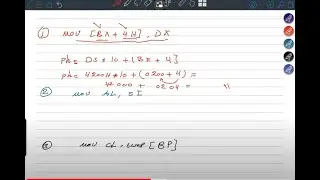 ① MOV [BX + 4H], DX
Phs DS * 10 + [BX + 4]
Phs 4200H * 10 + (0200 + 4) =
42000 + 0204 = "
② MOV AL, SI
③ MOV CL, [BP]